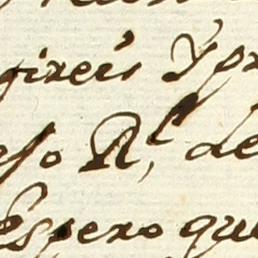 gireis Y pr
eso Rl, de
espero que